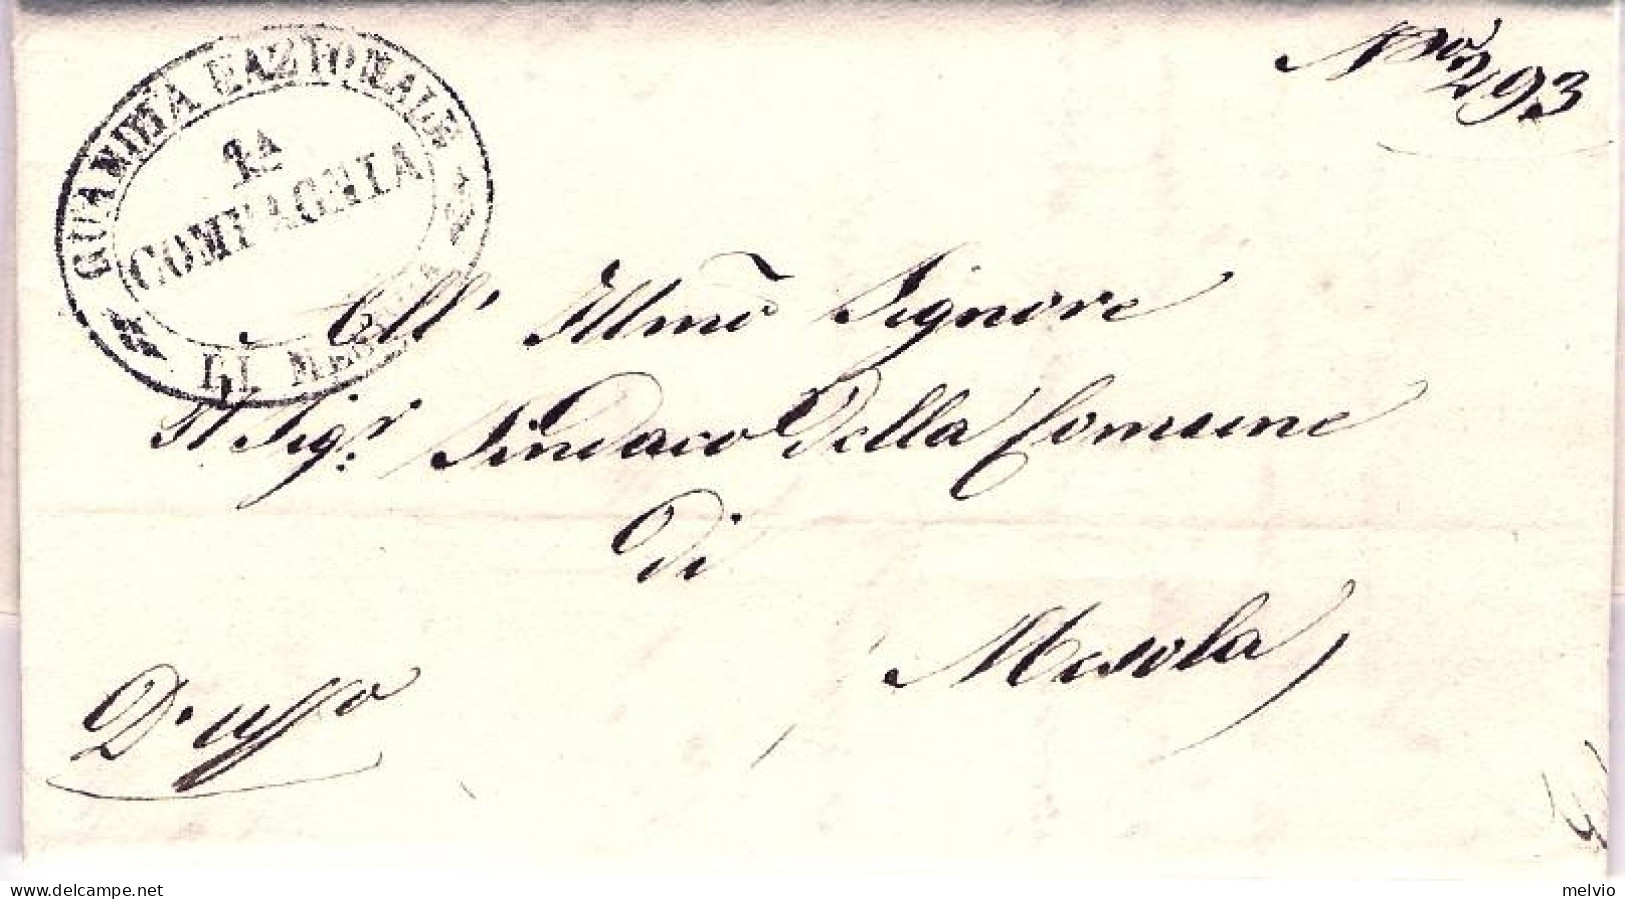 GUARDIA NAZIONALE
1A
COMPAGNIA
DI
N.ro 293
All' Illmo Signore
Il Sig.r Sindaco Della Comune
Di
Mesola
D'uffo
delcampe.net
melvio